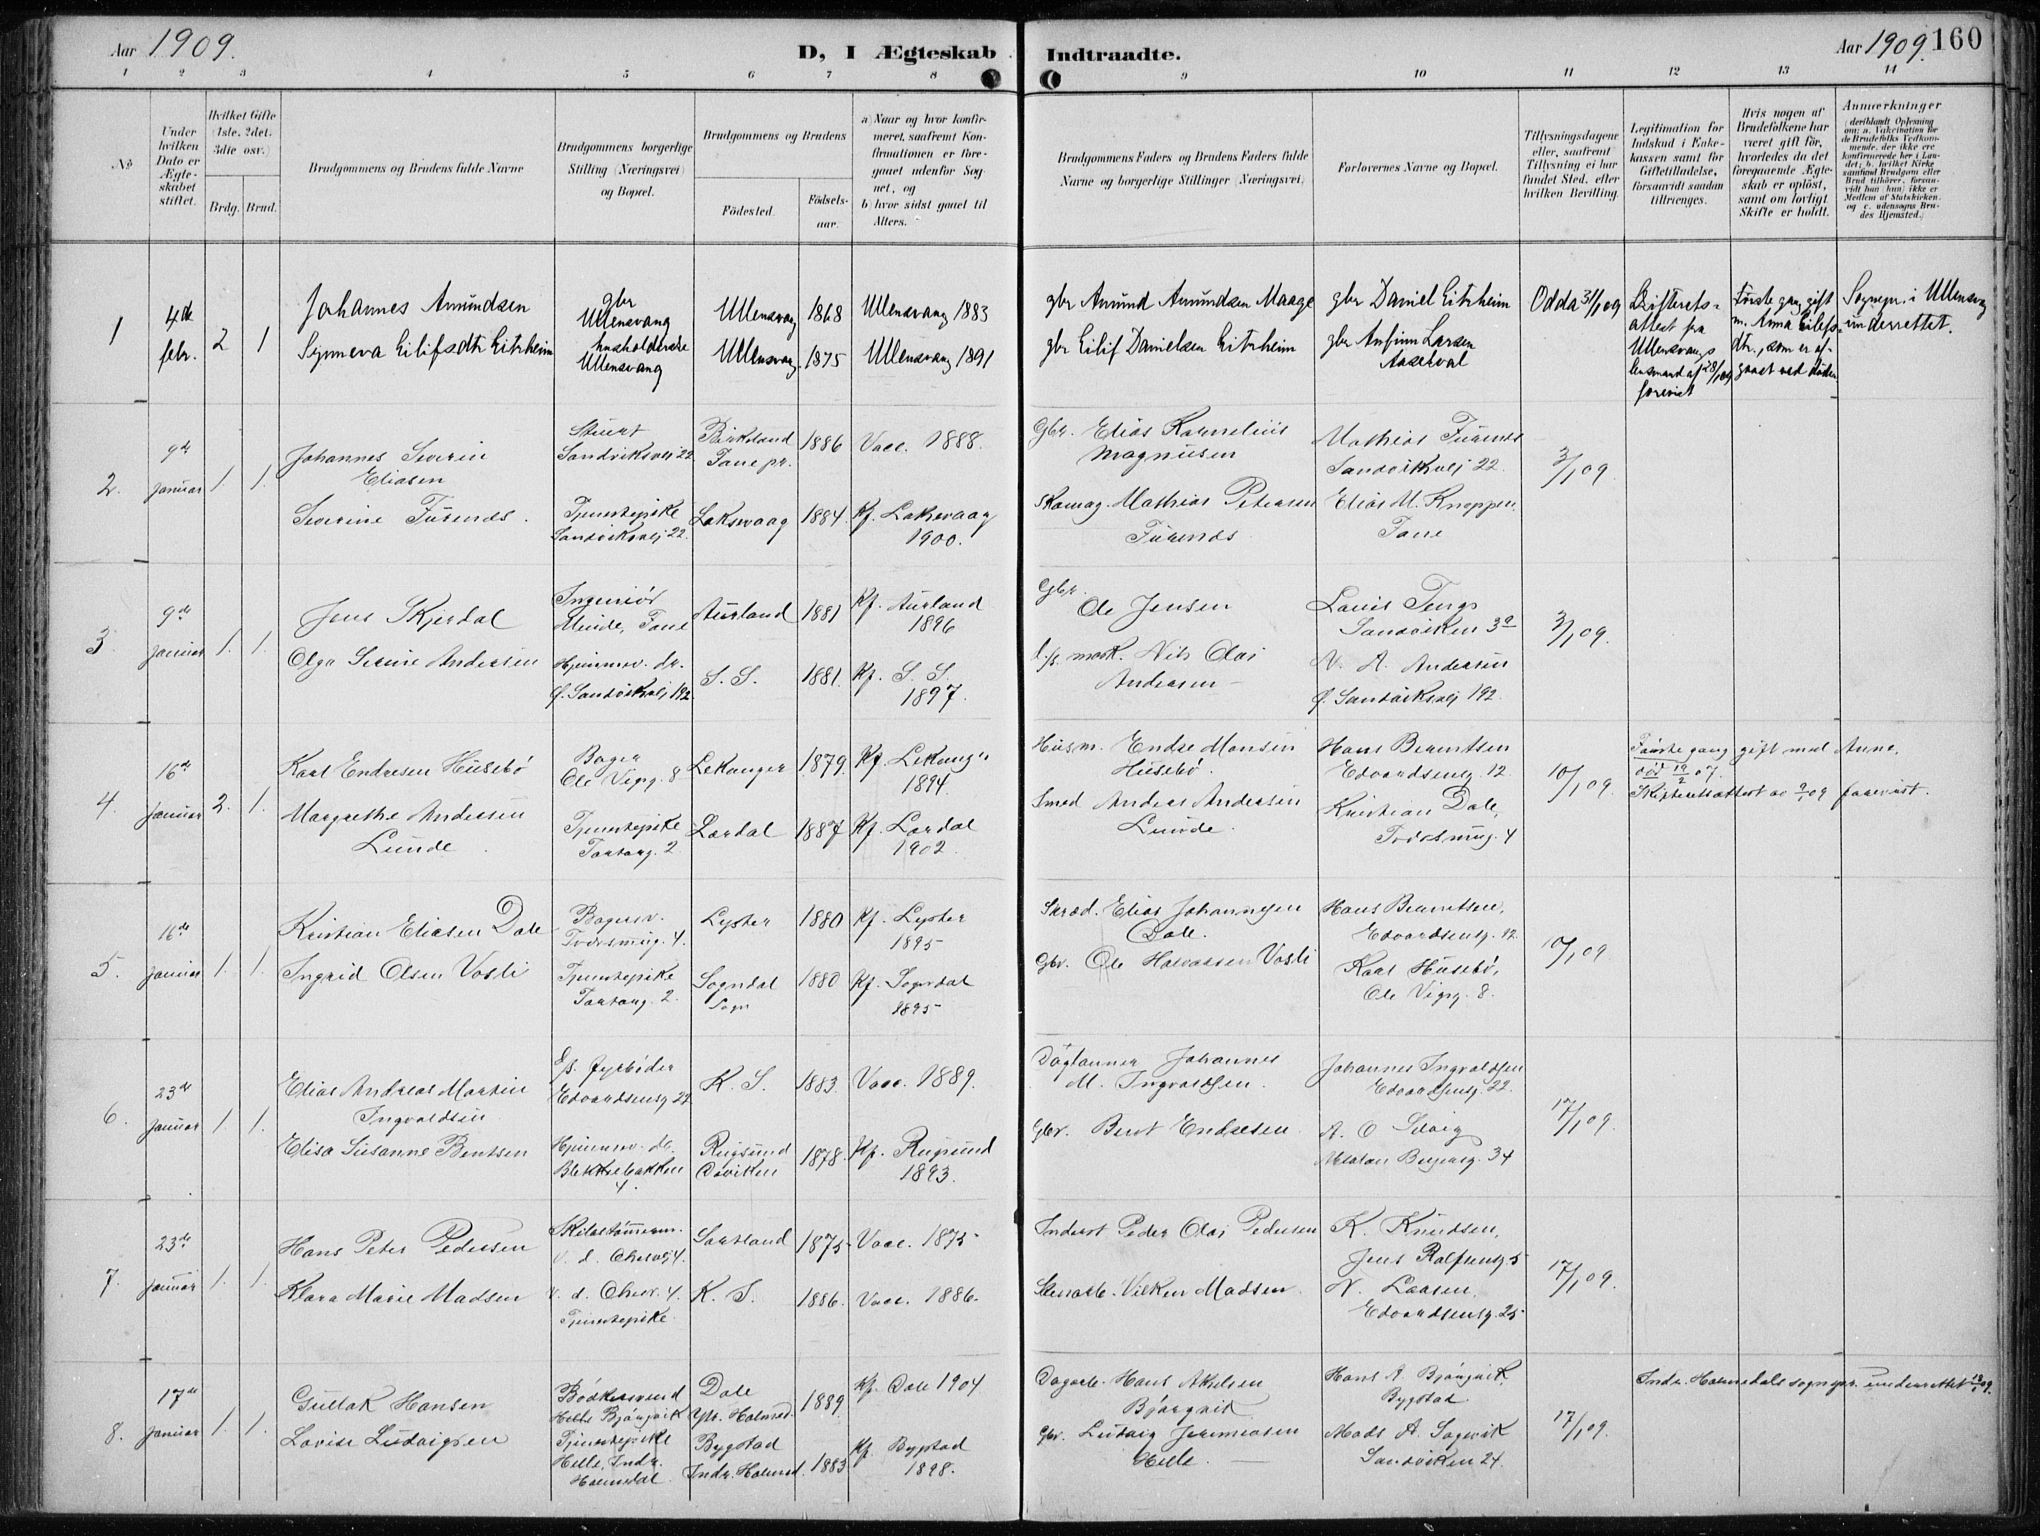 Aar 1909.
D, I Ægteskab
Indtraadte.
Aar 1909. 160
1 2 3 4 5 6 7 8 9 10 11 12 13 14
No
Under hvilken Dato er Ægteskabet stiftet.
Hvilket Gifte (1ste, 2det, 3die osv.)
Brdg. Brud.
Brudgommens og Brudens fulde Navne
Brudgommens borgerlige Stilling (Næringsvei) og Bopæl.
Brudgommens og Brudens
Fødested.
Fødselsaar.
a) Naar og hvor konfirmeret, saafremt Konfirmationen er foregaaet udenfor Sognet, og
b) hvor sidst gaaet til Alters.
Brudgommens Faders og Brudens Faders fulde Navne og borgerlige Stillinger (Næringsvei)
Forlovernes Navne og Bopæl.
Tillysningsdagene eller, saafremt Tillysning ei har fundet Sted, efter hvilken Bevilling.
Legitimation for Indskud i Enkekassen samt for Giftetilladelse, forsaavidt saadan tiltrænges.
Hvis nogen af Brudefolkene har været gift før, hvorledes da det foregaaende Ægteskab er opløst, samt om lovligt Skifte er holdt.
Anmærkninger
1 4de febr. 2 1
Johannes Amundsen gbr Ullensvang Ullensvang 1868 Ullensvang 1883
Synneva Eilifsdtr Eitrheim husholderske Ullensvang Ullensvang 1875 Ullensvang 1891
gbr Amund Amundsen Maage gbr Daniel Eitrheim Odda 31/1 09
gbr Eilif Danielsen Eitrheim gbr Anfinn Larsen
Skifteretsattest fra Ullensvangs lensmand af 28/1 09 forevist
Første gang gift m. Anna Eilifsdtr., som er afgaaet ved døden
Sognepr. i Ullensvang underrettet.
2. 9de januar 1. 1.
Johannes Severin Eliasen Stuert Sandviksvej 22 Birkeland Fane pr. 1886 Vacc. 1888.
Severine Furnes. Tjenestepike Sandviksvej 22. Laksevaag 1884 Kf. Laksevaag 1900.
Gbr. Elias Kornelius Magnusen Mathias Furnes Sandviksvej 22. 3/1 09.
Skomag. Mathias Petersen Furnes Elias M. Knappen, Fane
3. 9de januar 1. 1.
Jens Skjerdal Ingeniør Minde, Fane Aurland 1881 Kf. Aurland 1896
Olga Severine Andersen Hjemmev. dr. Ø. Sandviksvej 192. S. S. 1881. Kf. S. S. 1897.
Gbr. Ole Jensen Louis Tengs Sandviken 3a 3/1 09.
Nils Olai Andersen N. A. Andersen Ø. Sandviksvej 192.
4. 16de januar 2. 1.
Karl Endresen Husebø Bager Ole Vigsg. 8 Lekanger 1879. Kf. Lekang. 1894.
Margrethe Andersen Lunde Tjenestepike 2 Lærdal 1887 Kf. Lærdal 1902.
Husm. Endre Monsen Husebø. Hans Berentsen Edvardsensg. 12. 10/1 09.
Smed Anders Andersen Lunde. Kristian Dale, 4
Første gang gift med Anne, død 19/2 07.
Skifteretsattest av 9/1 09 forevist.
5. 16de januar 1. 1.
Kristian Eliasen Dale Bagersv. 4. Lyster 1880 Kf. Lyster 1895
Ingrid Olsen Vosli Tjenestepike 2. Sogndal Sogn 1880 Kf. Sogndal 1895
Skræd. Elias Johannesen Dale. Hans Berentsen, Edvardsensg. 12. 10/1 09
Gbr. Ole Halvorsen Vosli Karl Husebø, Ole Vigsg. 8.
6. 23de januar 1. 1.
Elias Andreas Martin Ingvaldsen D/s. fyrbøder Edvardsensg 22 K. S. 1883. Vacc. 1889.
Elisa Susanne Bentsen Hjemmev. dr. Blekkebakken 4. Rugsund Daviken 1878. Kf. Rugsund 1893.
Daglønner Johannes M. Ingvaldsen. Johannes Ingvaldsen Edvardsensg. 22. 17/1 09.
Gbr. Bent Endresen. A. O 34
7. 23de januar 1. 1.
Hans Peter Pedersen 4. Sortland 1875. Vacc. 1875.
Klara Marie Madsen 4. Tjenestepike. K. S. 1886. Vacc. 1886.
Inderst Peder Olai Pedersen K. Knudsen, Jens Rolfsensg. 5 17/1 09.
Vilken Madsen. N. Larsen, Edvardsensg. 25.
8. 17de januar 1. 1.
Gullak Hansen Bødkersvend Helle Bjørgvik Dale Ytr. Holmed. 1889. Kf. Dale 1904
Lovise Ludvigsen Tjenestepike Helle, Indr. Holmedal Bygstad Indr. Holmed. 1883 Kf. Bygstad 1898.
Dagarb. Hans Akselsen Bjørgvik Hans A. Bjørgvik, Bygstad 17/1 09.
Gbr. Ludvig Jeremiasen Helle. Mads A. Sandviken 24.
Indr. Holmedals sognepr. underrettet 18/1 09.